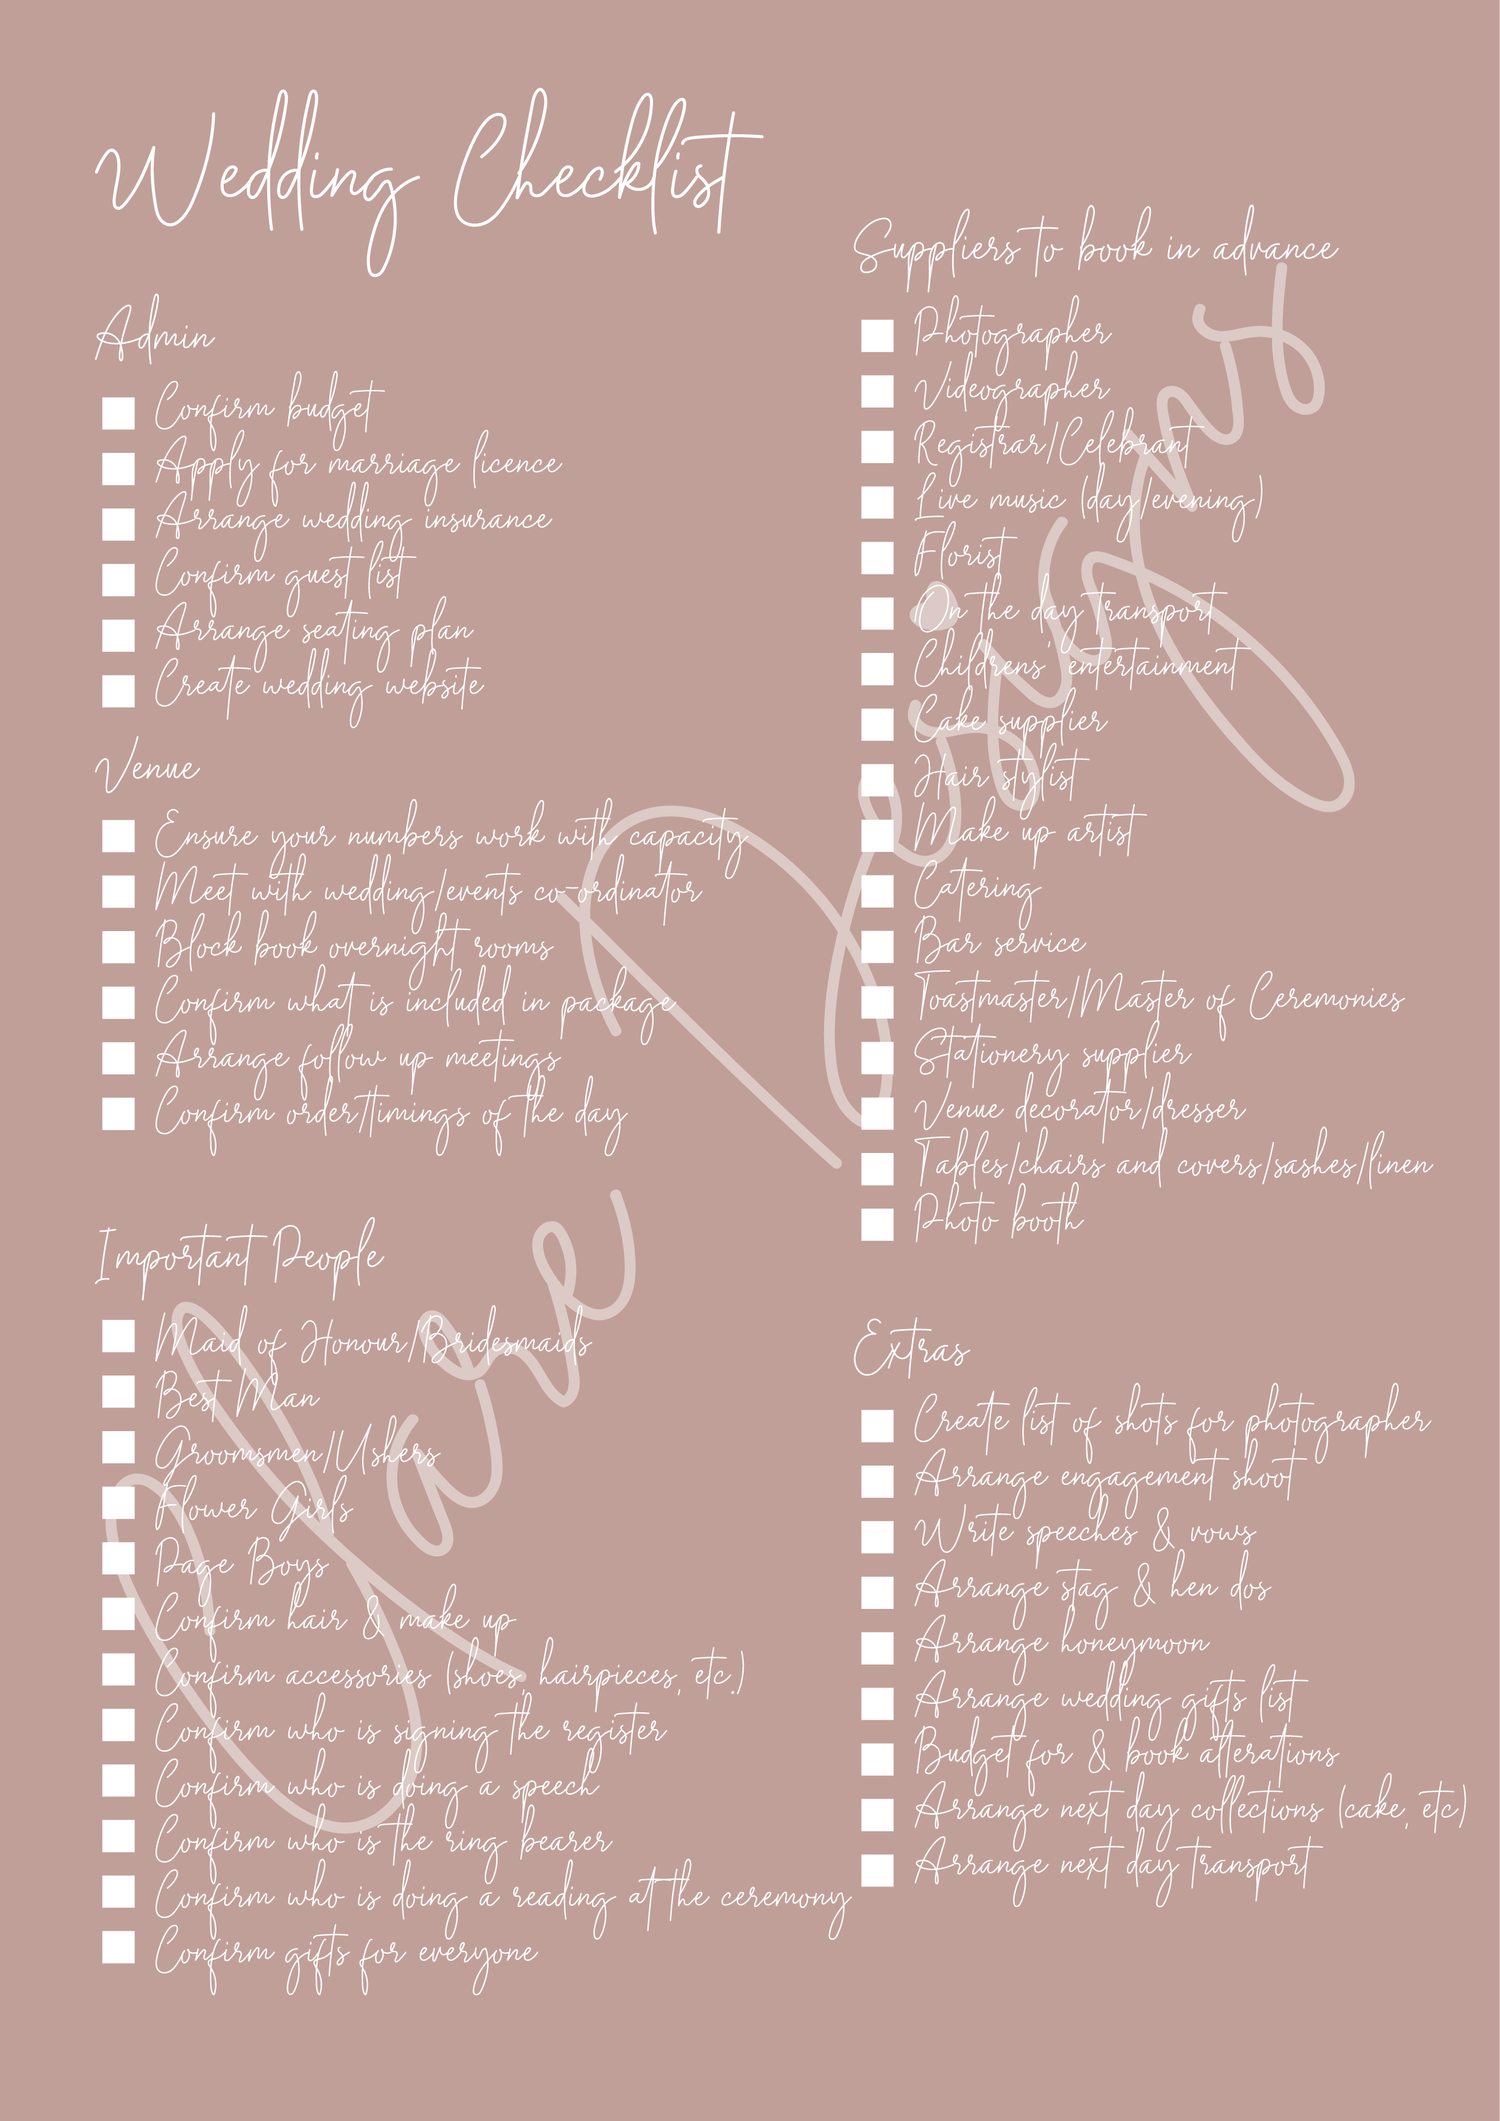 Wedding Checklist
Admin
Confirm budget
Apply for marriage licence
Arrange wedding insurance
Confirm guest list
Arrange seating plan
Create wedding website
Venue
Ensure your numbers work with capacity
Meet with wedding/events co-ordinator
Block book overnight rooms
Confirm what is included in package
Arrange follow up meetings
Confirm order/timings of the day
Important People
Maid of Honour/Bridesmaids
Best Man
Groomsmen/Ushers
Flower Girls
Page Boys
Confirm hair & make up
Confirm accessories (shoes, hairpieces, etc.)
Confirm who is signing the register
Confirm who is doing a speech
Confirm who is the ring bearer
Confirm who is doing a reading at the ceremony
Confirm gifts for everyone
Suppliers to book in advance
Photographer
Videographer
Registrar/Celebrant
Live music (day/evening)
Florist
On the day transport
Childrens' entertainment
Cake supplier
Hair stylist
Make up artist
Catering
Bar service
Toastmaster/Master of Ceremonies
Stationery supplier
Venue decorator/dresser
Tables/chairs and covers/sashes/linen
Photo booth
Extras
Create list of shots for photographer
Arrange engagement shoot
Write speeches & vows
Arrange stag & hen dos
Arrange honeymoon
Arrange wedding gifts list
Budget for & book alterations
Arrange next day collections (cake, etc)
Arrange next day transport
Yare Designs